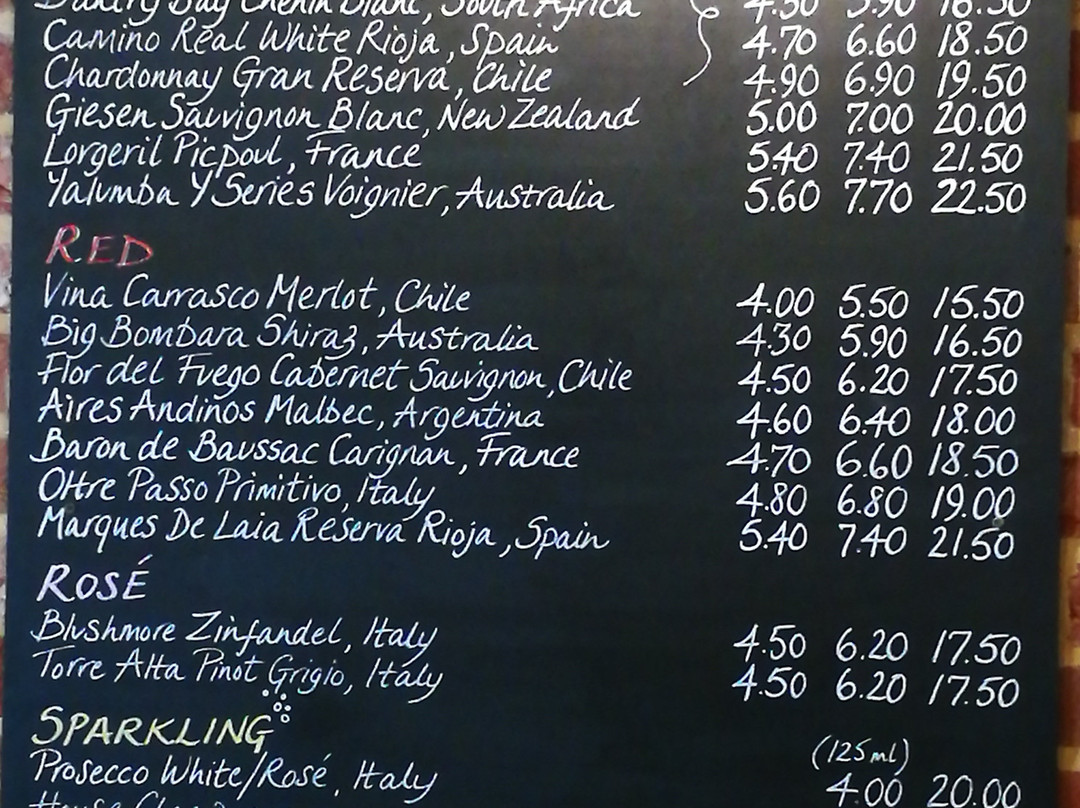 Bay Chenin Blanc, South Africa 4.30 5.90 16.50
Camino Real White Rioja, Spain 4.70 6.60 18.50
Chardonnay Gran Reserva, Chile 4.90 6.90 19.50
Giesen Sauvignon Blanc, New Zealand 5.00 7.00 20.00
Lorgeril Picpoul, France 5.40 7.40 21.50
Yalumba Y Series Voignier, Australia 5.60 7.70 22.50
RED
Vina Carrasco Merlot, Chile 4.00 5.50 15.50
Big Bombara Shiraz, Australia 4.30 5.90 16.50
Flor del Fuego Cabernet Sauvignon, Chile 4.50 6.20 17.50
Aires Andinos Malbec, Argentina 4.60 6.40 18.00
Baron de Baussac Carignan, France 4.70 6.60 18.50
Oltre Passo Primitivo, Italy 4.80 6.80 19.00
Marques De Laia Reserva Rioja, Spain 5.40 7.40 21.50
ROSÉ
Blushmore Zinfandel, Italy 4.50 6.20 17.50
Torre Alta Pinot Grigio, Italy 4.50 6.20 17.50
SPARKLING
(125ml)
Prosecco White/Rosé, Italy 4.00 20.00
House